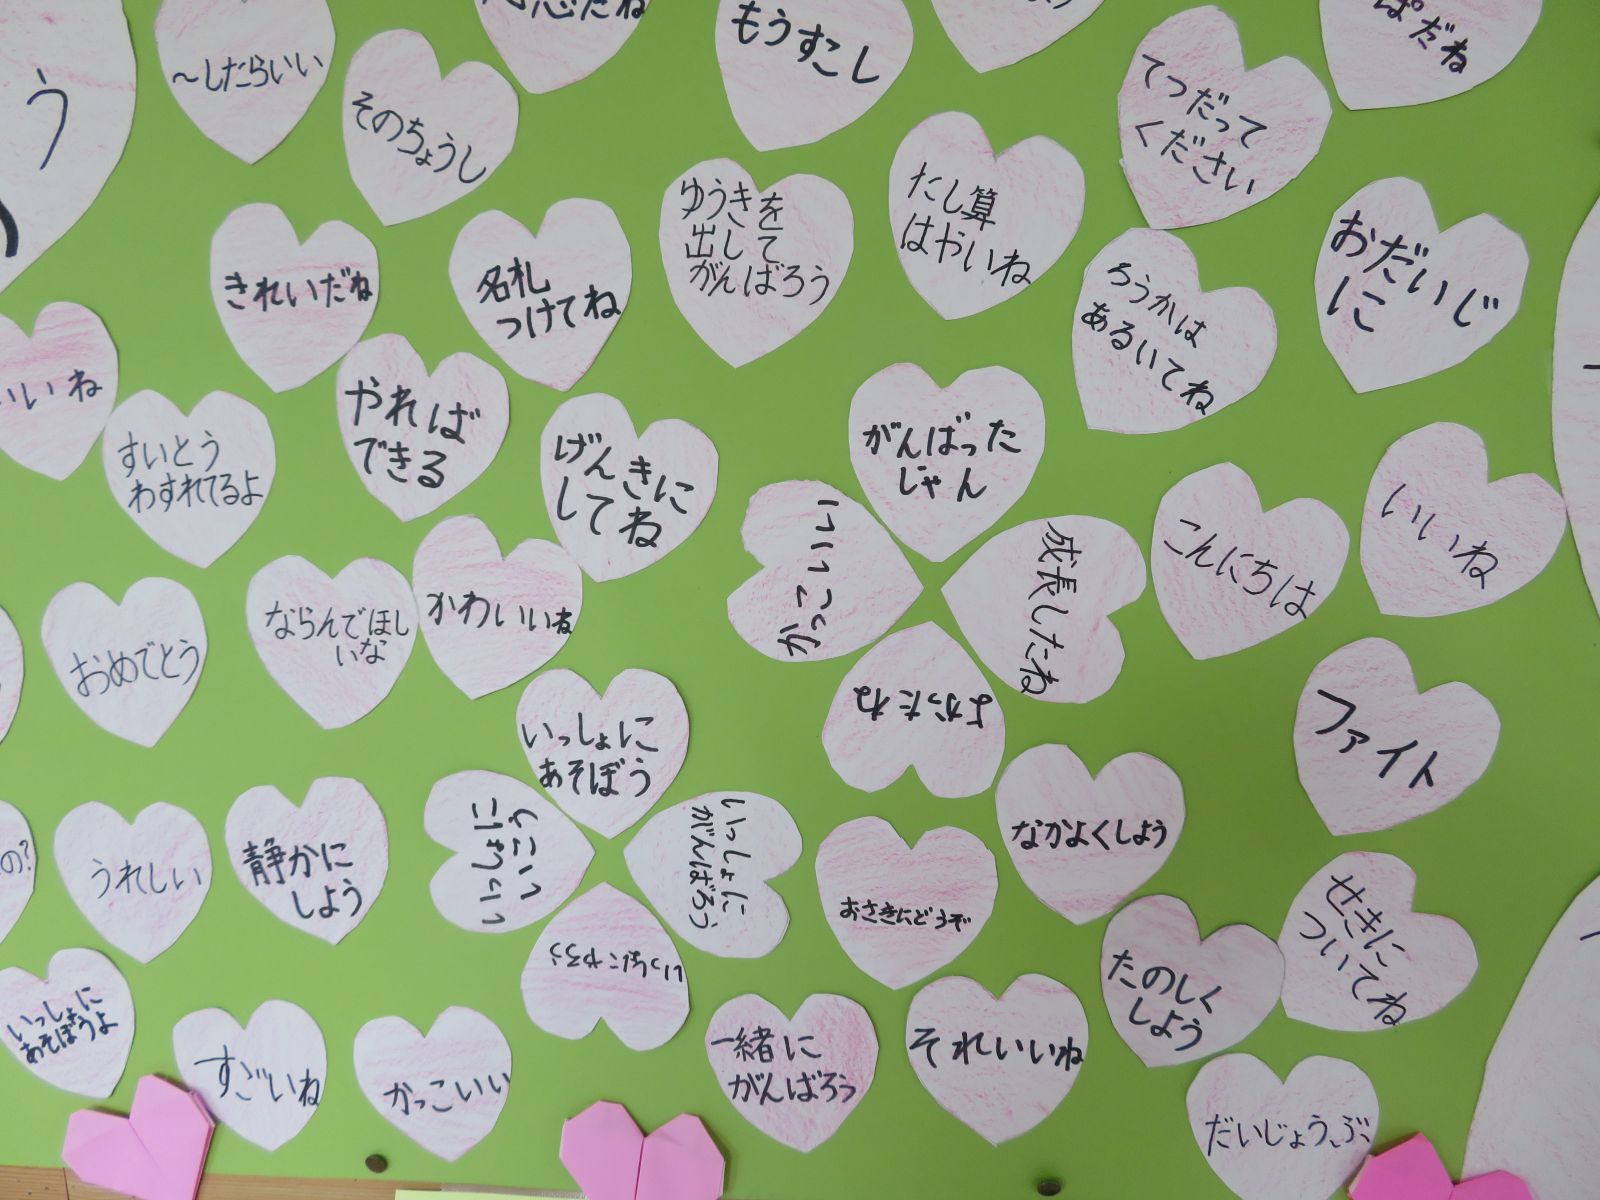 う
〜しだらいい
そのちょうし
だね
もうすこし
ぱだね
てつだって
ください
きれいだね
名札
つけてね
ゆうきを
出して
がんばろう
たし算
はやいね
ろうかは
あるいてね
おだいじ
に
いいね
すいとう
わすれてるよ
やれば
できる
げんきに
してね
がんばった
じゃん
かっこいい
成長したね
よかったね
こんにちは
いいね
おめでとう
ならんでほし
いな
かわいいね
いっしょに
あそぼう
ファイト
の?
うれしい
静かに
しよう
いっしょに
がんばろう
おさきにどうぞ
なかよくしよう
せきに
ついてね
たのしく
しよう
いっしょに
あそぼうよ
すごいね
かっこいい
一緒に
がんばろう
それいいね
だいじょうぶ